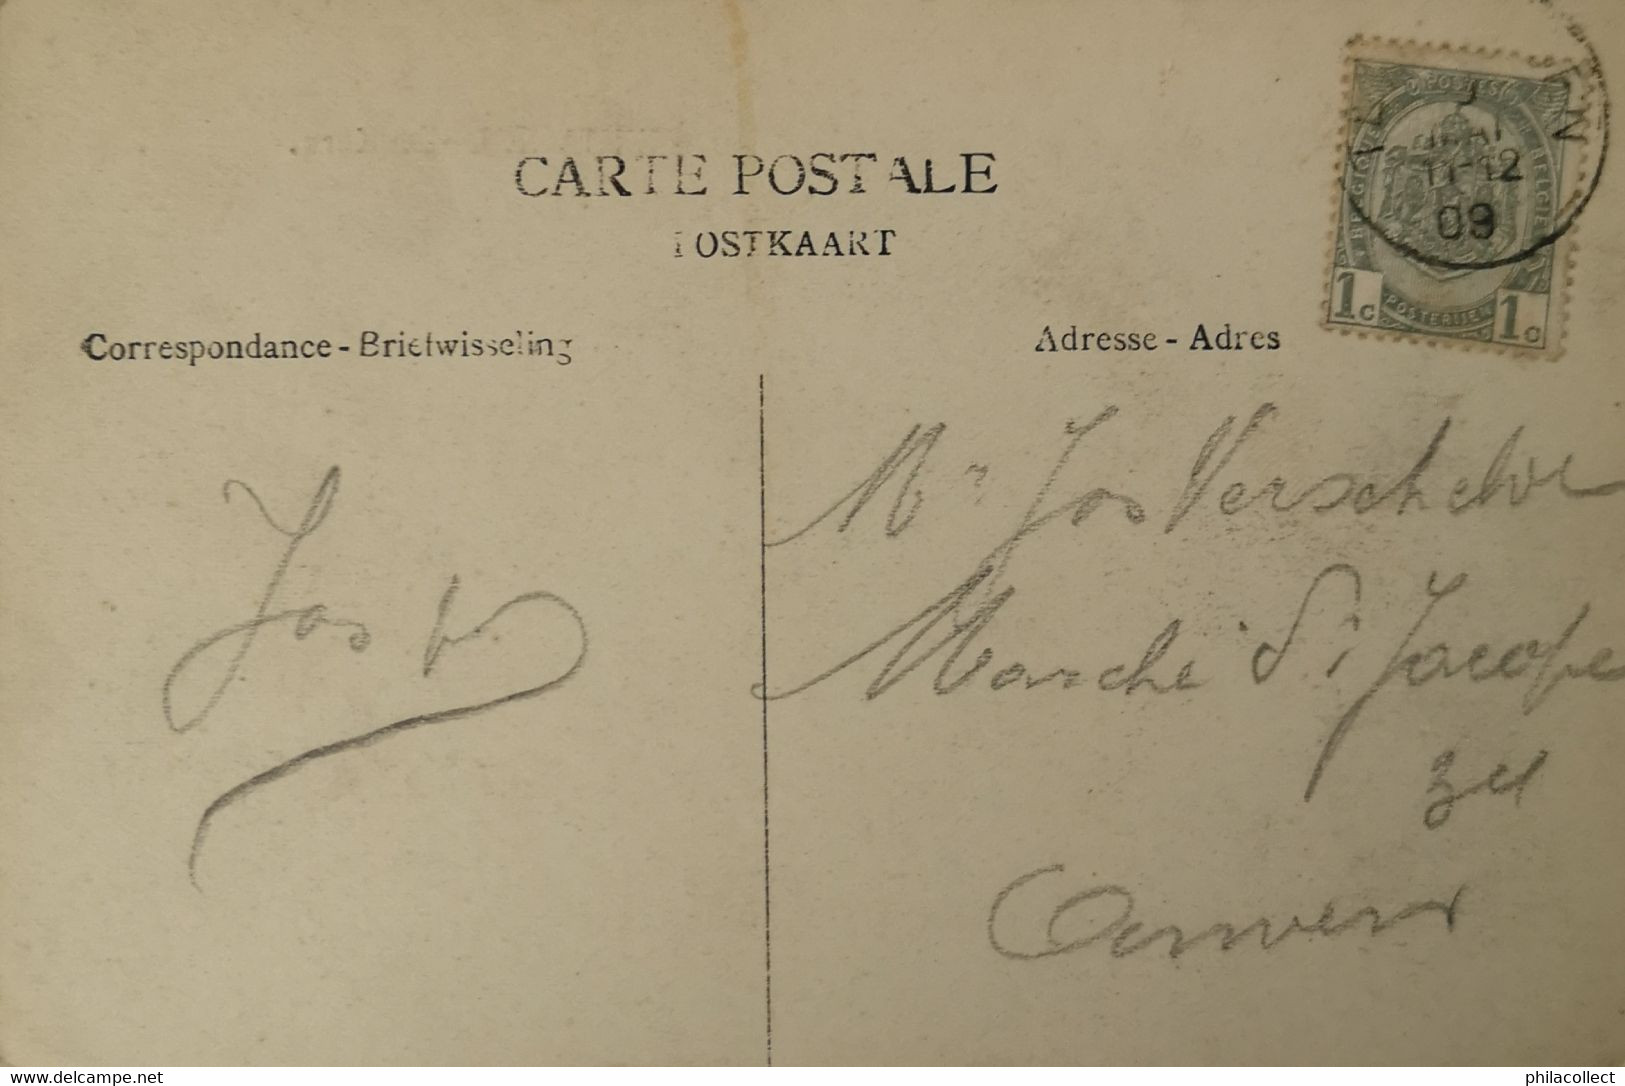 CARTE POSTALE
POSTKAART
Correspondance - Briefwisseling
Adresse - Adres
POSTES
BELGIQUE
BELGIE
POSTERIJEN
1c 1c
11-12
09
Jos
Mr Jos Verschelve
Marché St Jacques
34
Anvers
philacollect
www.delcampe.net